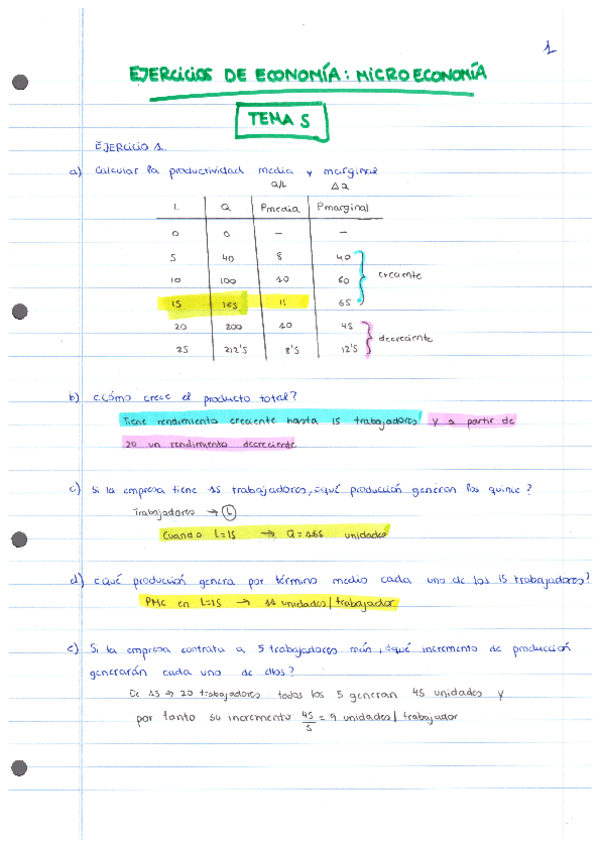 1
EJERCICIOS DE ECONOMÍA: MICROECONOMÍA
TEMA 5
EJERCICIO 1.
a) Calcular la productividad media y marginal
Q/L ΔQ
L Q Pmedia Pmarginal
0 0 - -
5 40 8 40
10 100 10 60 creciente
15 165 11 65
20 200 10 45 decreciente
25 212'5 8'5 12'5
b) ¿Cómo crece el producto total?
Tiene rendimiento creciente hasta 15 trabajadores y a partir de
20 un rendimiento decreciente
c) Si la empresa tiene 15 trabajadores, ¿qué producción generan los quince?
Trabajadores → L
Cuando L=15 → Q=165 unidades
d) ¿Qué producción genera por término medio cada uno de los 15 trabajadores?
PMe en L=15 → 11 unidades/trabajador
e) Si la empresa contrata a 5 trabajadores más, ¿qué incremento de producción
generarán cada uno de ellos?
De 15 → 20 trabajadores todos los 5 generan 45 unidades y
por tanto su incremento 45/5 = 9 unidades/trabajador